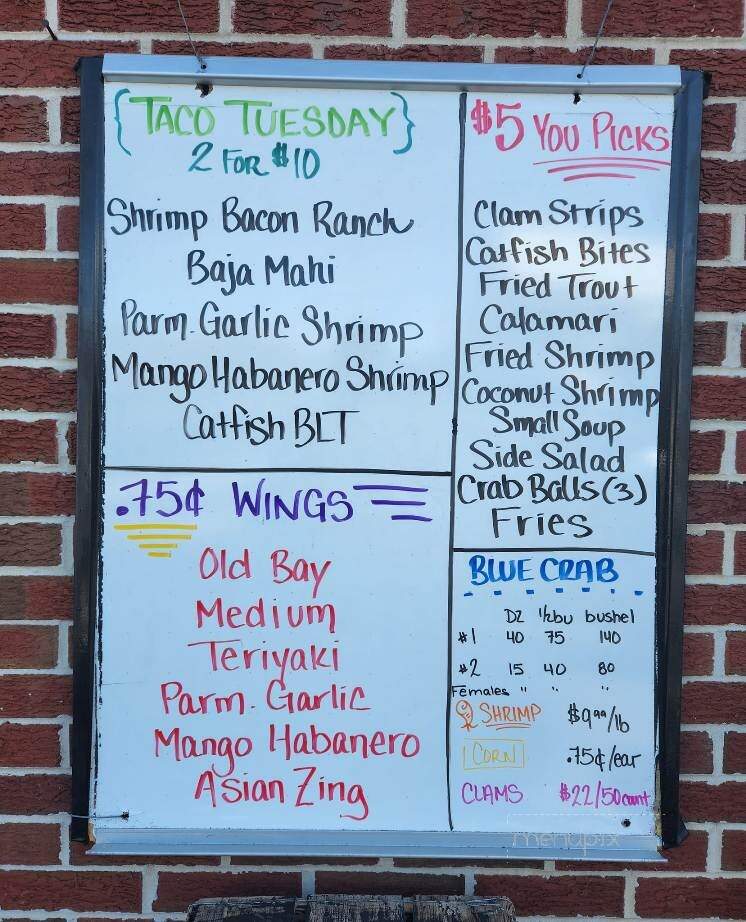 {TACO TUESDAY}
2 FOR $10
Shrimp Bacon Ranch
Baja Mahi
Parm. Garlic Shrimp
Mango Habanero Shrimp
Catfish BLT
.75¢ WINGS
Old Bay
Medium
Teriyaki
Parm. Garlic
Mango Habanero
Asian Zing
$5 YOU PICKS
Clam Strips
Catfish Bites
Fried Trout
Calamari
Fried Shrimp
Coconut Shrimp
Small Soup
Side Salad
Crab Balls (3)
Fries
BLUE CRAB
DZ 1/2bu bushel
#1 40 75 140
#2 15 40 80
Females " " "
SHRIMP $9.99/lb
CORN .75¢/ear
CLAMS $22/50count
menupix